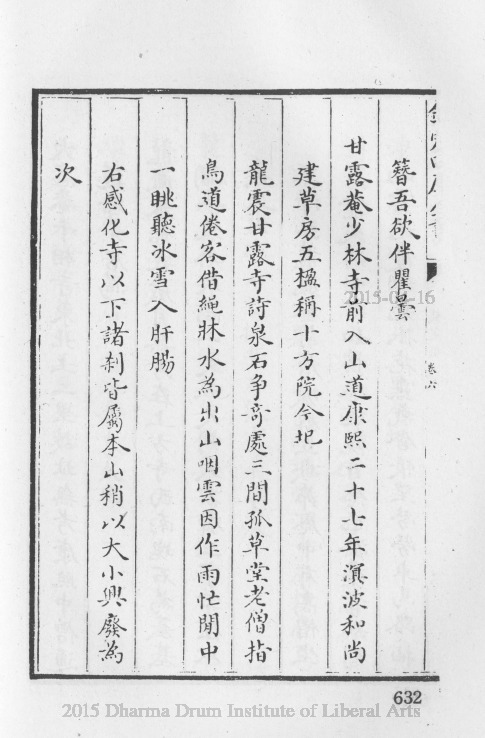 簪吾欲伴瞿曇
甘露菴少林寺前入山道康熙二十七年溟波和尚
建草房五楹稱十方院今圯
龍震甘露寺詩泉石争竒處三間孤草堂老僧指
鳥道倦客借繩牀水為出山咽雲因作雨忙閒中
一眺聽冰雪入肝腸
右感化寺以下諸刹皆屬本山稍以大小興廢為
次
卷六
632
2015-04-16
2015 Dharma Drum Institute of Liberal Arts